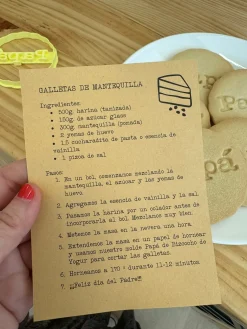 GALLETAS DE MANTEQUILLA
Ingredientes:
• 500g. harina (tamizada)
• 150g. de azúcar glass
• 300g. mantequilla (pomada)
• 2 yemas de huevo
• 1,5 cucharadita de pasta o esencia de
vainilla
• 1 pizca de sal
Pasos:
1. En un bol, comenzamos mezclando la
mantequilla, el azúcar y las yemas de
huevo.
2. Agregamos la esencia de vainilla y la sal
3. Pasamos la harina por un colador antes de
incorporarla al bol. Mezclamos muy bien.
4. Metemos la masa en la nevera una hora
5. Extendemos la masa en un papel de hornear
y usamos nuestro sello Papá de Bizcocho de
Yogur para cortar las galletas.
6. Horneamos a 170º durante 11-12 minutos
7. ¡¡Feliz día del Padre!!
Papá
Pa
pá